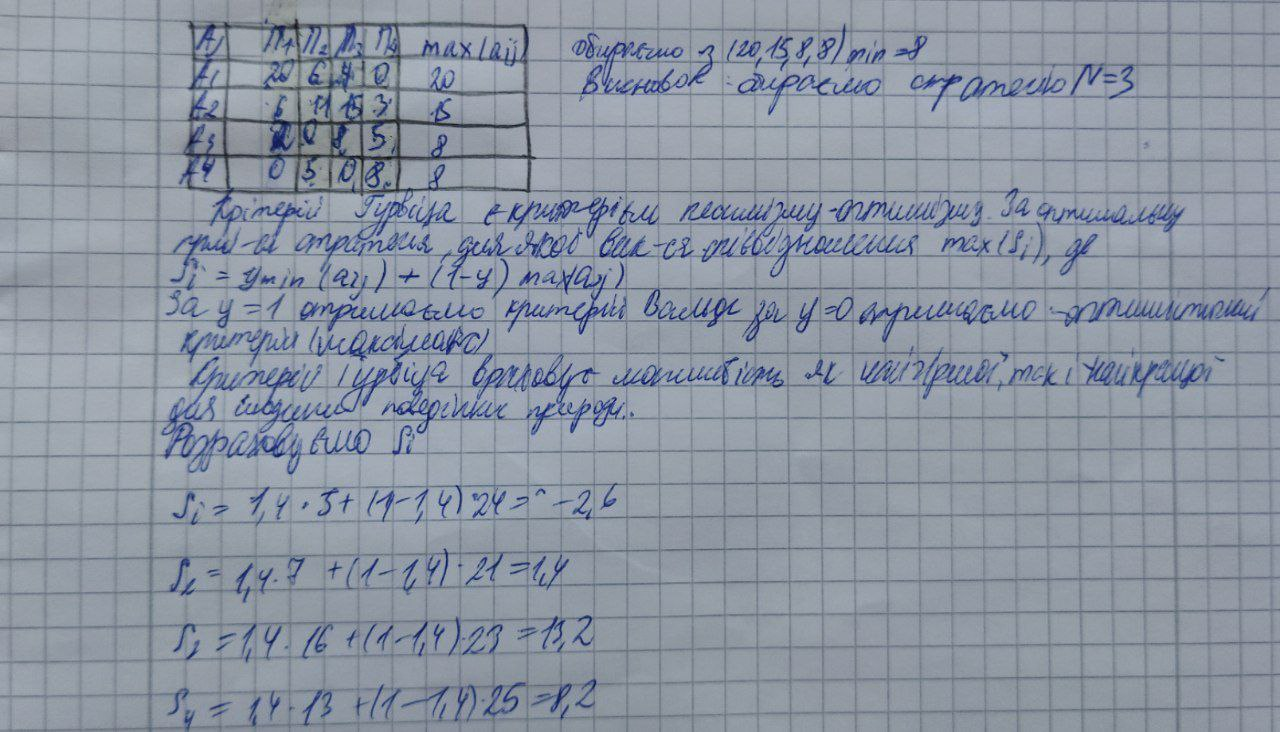 Aj П1 П2 П3 П4 max(aij)
A1 20 6 4 0 20
обираємо з (20,15,8,8) min =8
Висновок: обираємо стратегію N=3
A2 6 11 15 3 15
A3 0 8 5 8
A4 0 5 0 8 8
Крітерій Гурвіца є критерієм песимізму-оптимізму. За оптимальну
прий-ся стратегія, для якої вик-ся співвідношення max(Si), де
Si = y min (aij) + (1-y) max(aij)
За y=1 отримаємо критерій Вальда за y=0 отримаємо - оптимістичний
критерій (максімакс)
Критерій Гурвіца враховує можливість як найгіршої, так і найкращої
для людини поведінки природи.
Розраховуємо Si
Si = 1,4 · 5 + (1-1,4) · 24 = -2,6
S2 = 1,4 · 7 + (1-1,4) · 21 = 1,4
S2 = 1,4 · 16 + (1-1,4) · 23 = 13,2
S4 = 1,4 · 13 + (1-1,4) · 25 = 8,2